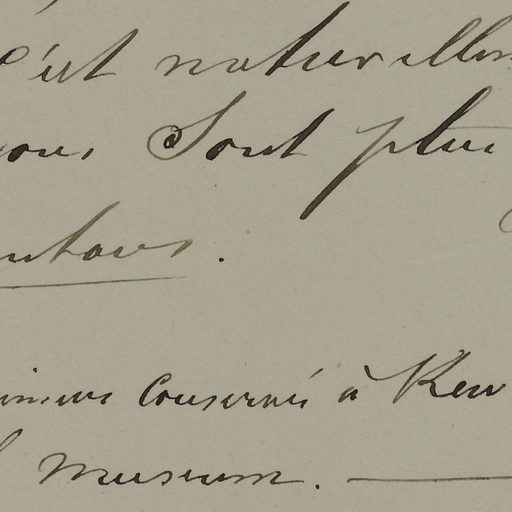 C'est naturellem
vous sont plus
entaux.
cimens conservés à Kew
l museum.